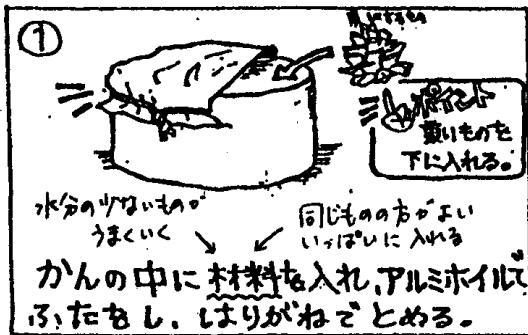 ①
ポイント
重いものを
下に入れる。
水分の少ないものが
うまくいく
同じものの方がよい
いっぱいに入れる
かんの中に材料を入れ、アルミホイルで
ふたをし、はりがねでとめる。